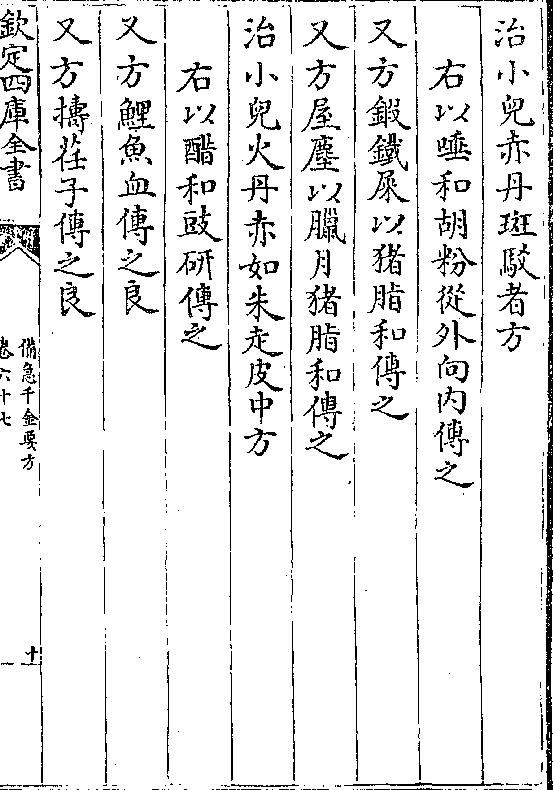 治小兒赤丹斑駁者方
右以唾和胡粉從外向内傅之
又方鍜鐵屎以猪脂和傅之
又方屋塵以臘月猪脂和傅之
治小兒火丹赤如朱走皮中方
右以醋和豉研傅之
又方鯉魚血傅之良
又方擣荏子傅之良
欽定四庫全書
備急千金要方
卷六十七
十